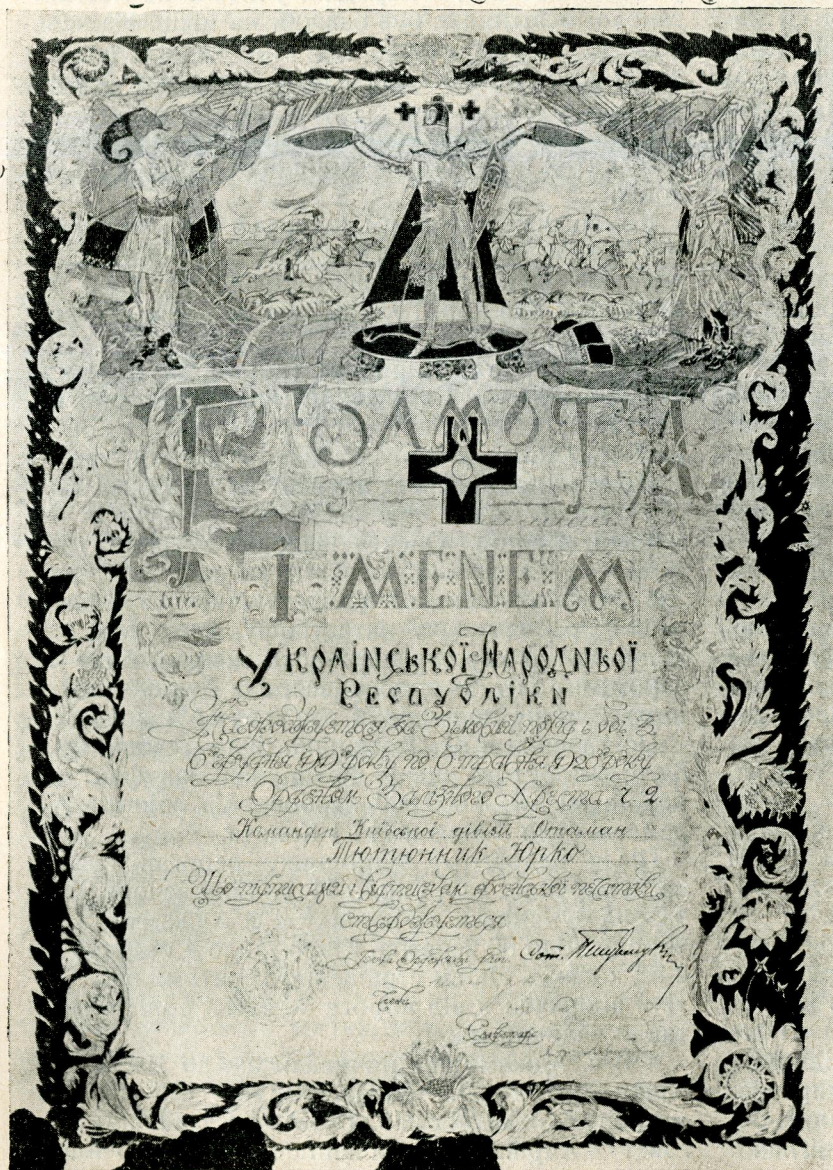 Грамота
Іменем
Української Народньої
Республіки
Нагороджується за Зимовий похід і бої з
6 грудня 1919 року по 6 травня 1920 року
Орденом Залізного Хреста ч. 2.
Командир Київської дівізії Отаман
Тютюнник Юрко
Що підписами і витиском державної печатки
стверджується
Голова Орденської Ради Сот.
Члени
Секретарь